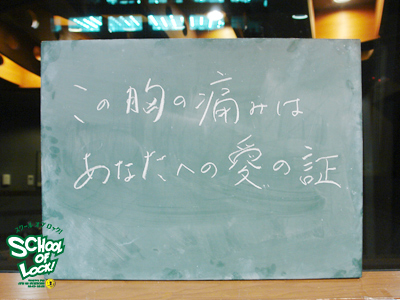 この胸の痛みは
あなたへの愛の証
スクール・オブ・ロック!
SCHOOL
OF
LOCK!